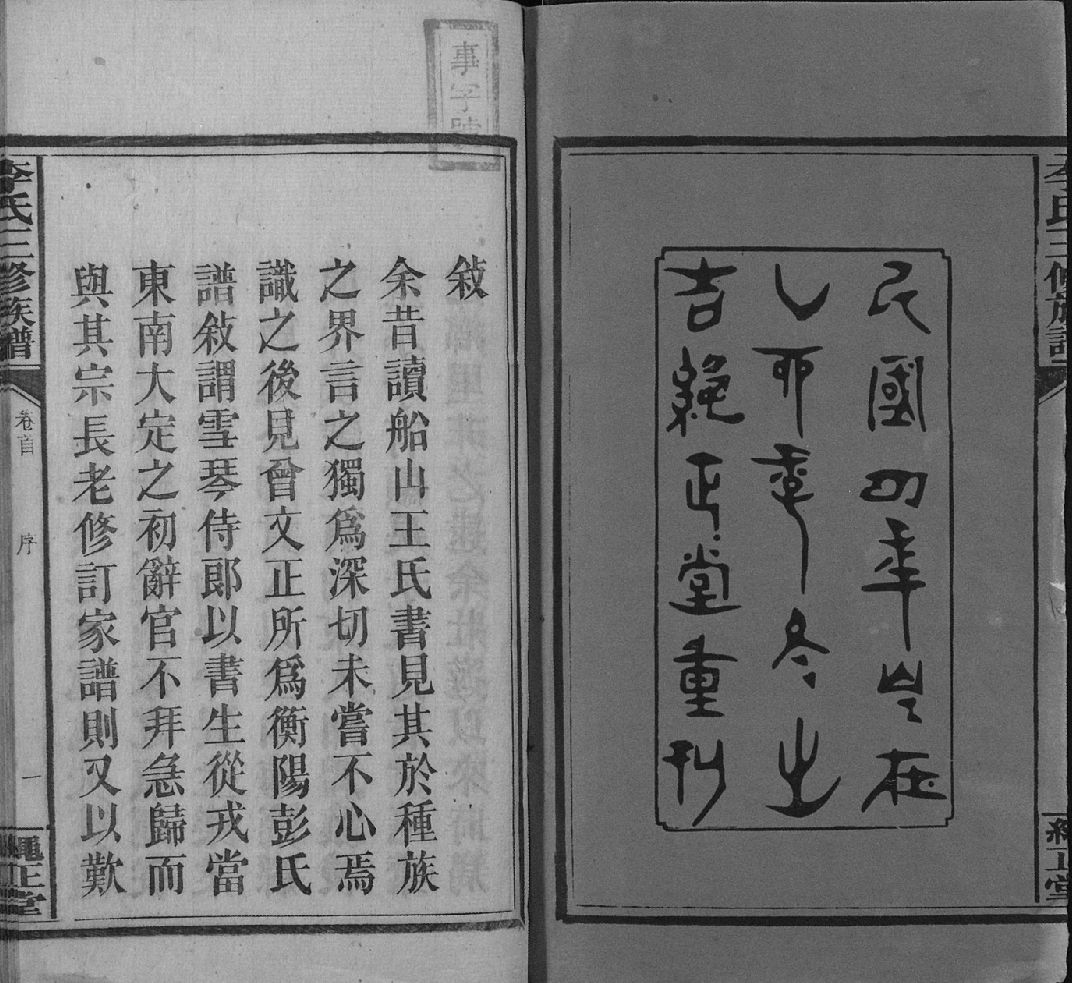 民國四年岁在
乙卯季冬之
吉繩正堂重刊
李氏三修族譜
繩正堂
事字號
敍
余昔讀船山王氏書見其於種族
之界言之獨爲深切未嘗不心焉
識之後見曾文正所爲衡陽彭氏
譜敍謂雪琴侍郎以書生從戎當
東南大定之初辭官不拜急歸而
與其宗長老修訂家譜則又以歎
李氏三修族譜
卷首
序
一
繩正堂